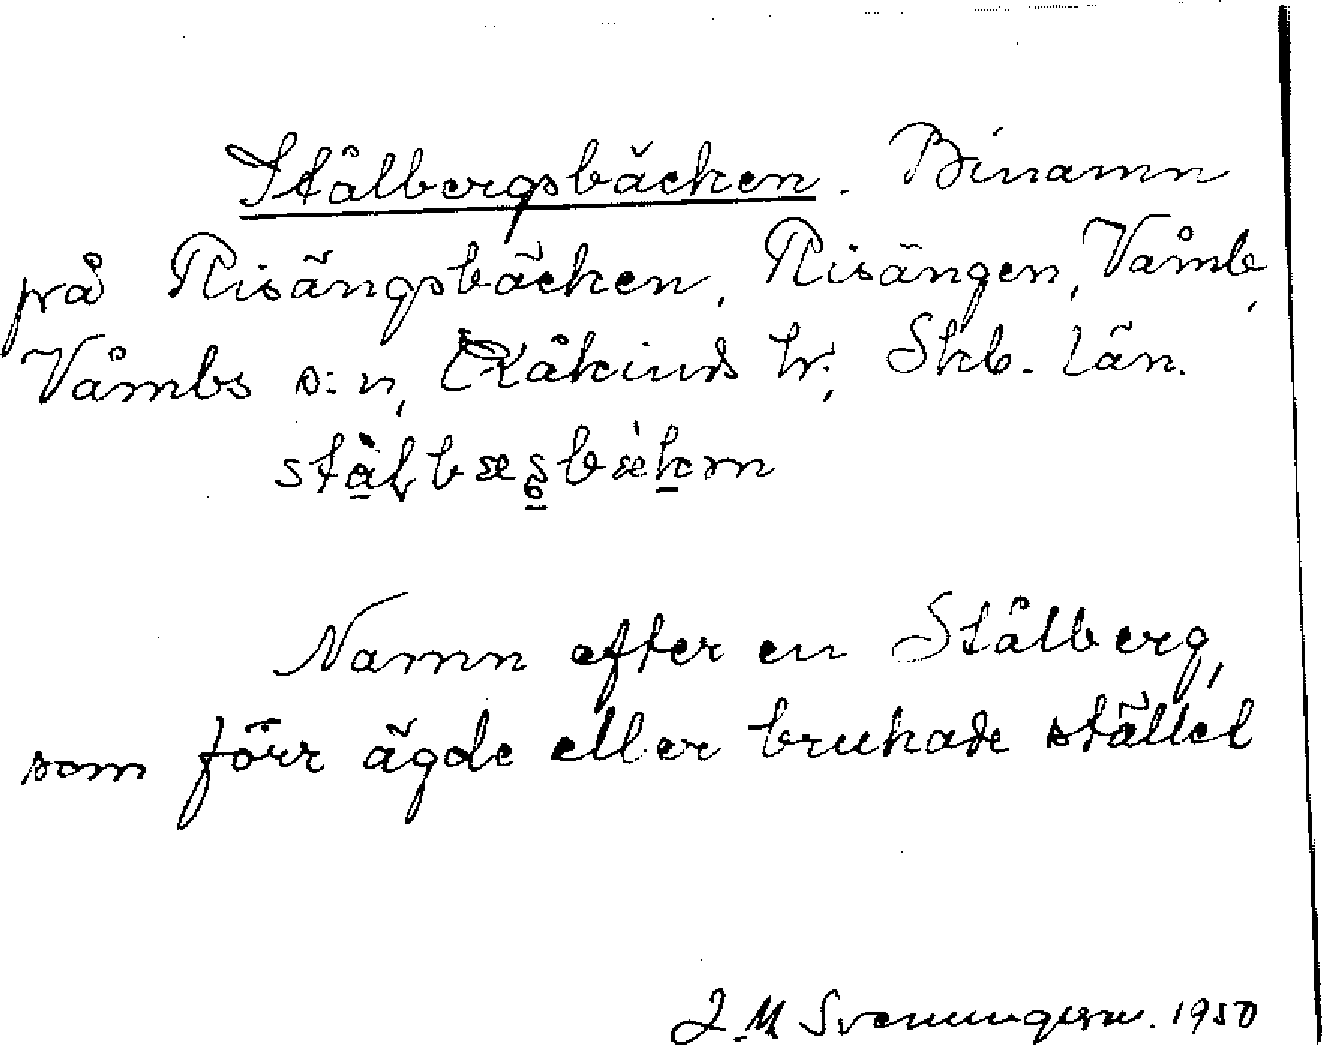 Stålbergsbäcken. Binamn
på Risängsbäcken, Risängen, Våmb,
Våmbs s:n, Kåkinds hd, Skb. län.
Namn efter en Stålberg,
som förr ägde eller brukade stället
J M Svenungsson. 1950